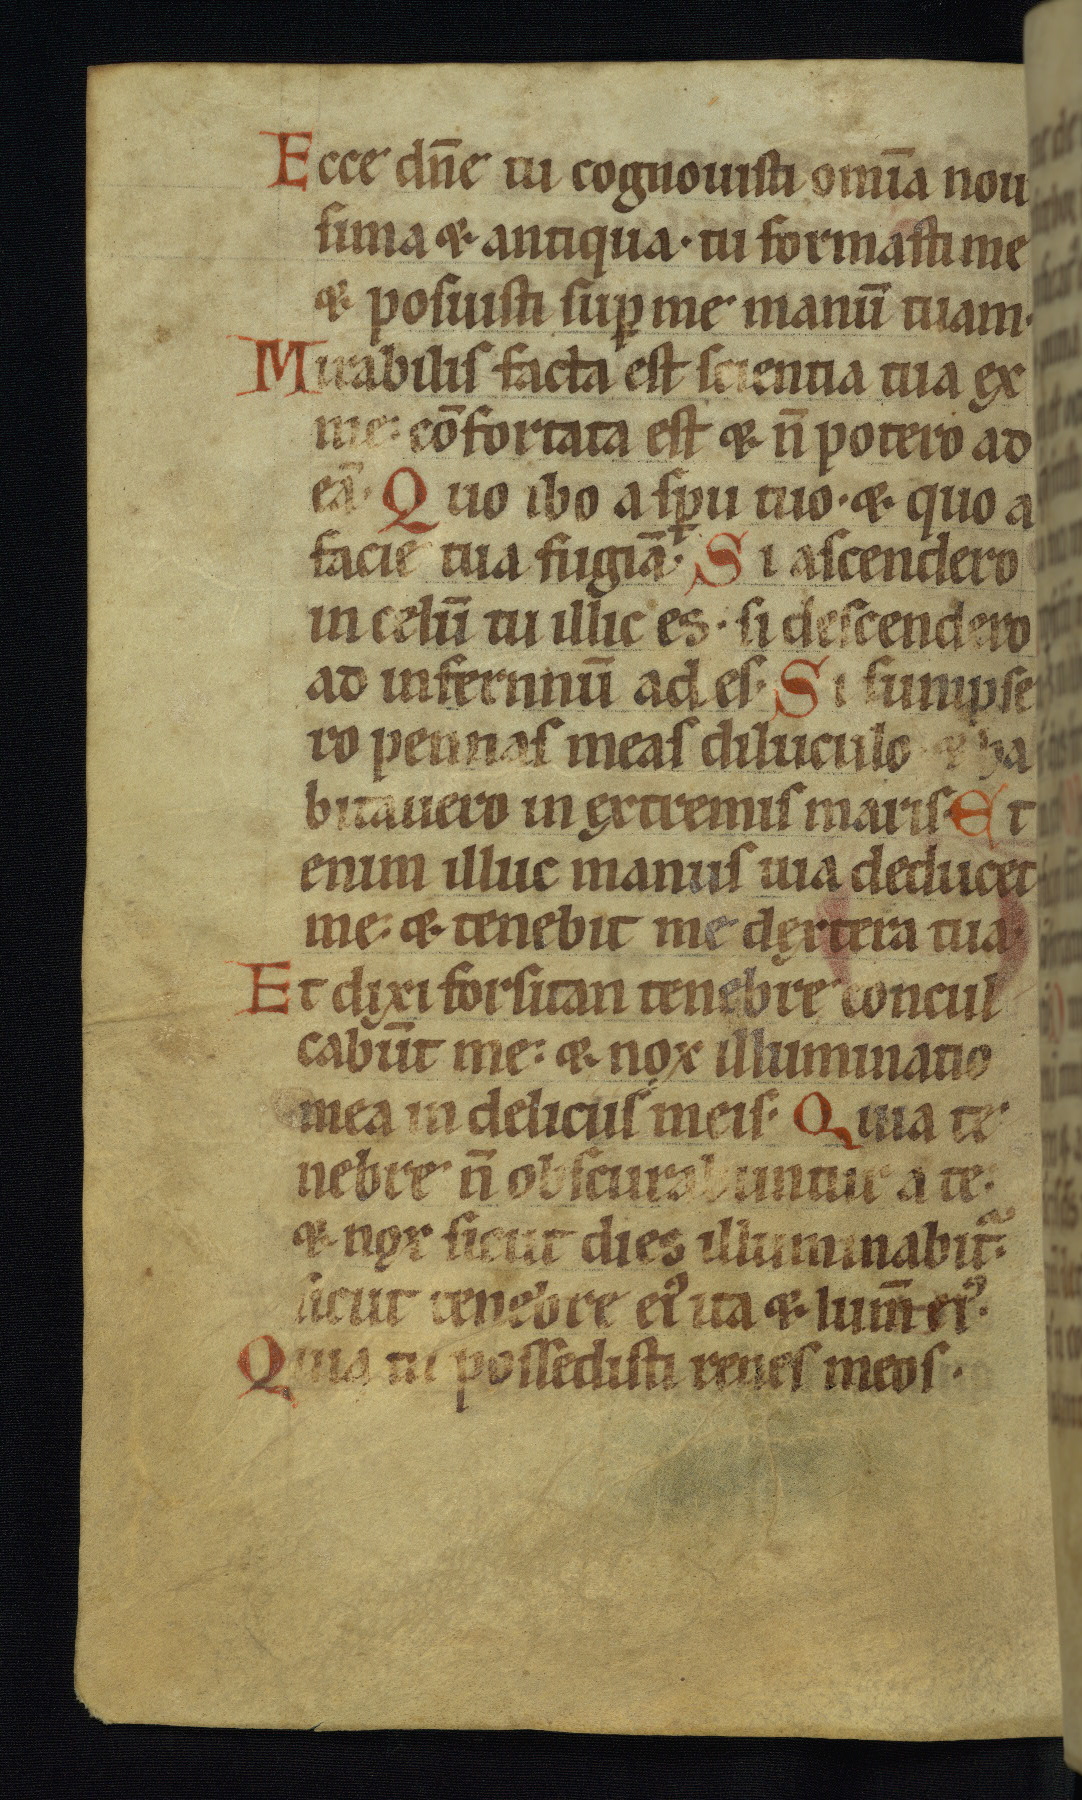 Ecce dn̄e tu cognouisti om̄ia noui
sima & antiqua· tu formasti me
& posuisti suꝑ me manū tuam·
Mirabilis facta est scientia tua ex
me: cōfortata est & n̄ potero ad
eā· Quo ibo a sp̄u tuo· & quo a
facie tua fugiā· Si ascendero
in celū tu illic es· si descendero
ad infernnū ad es· Si sumpse
ro pennas meas diluculo & ha
bitauero in extremis maris· Et
enim illuc manus uia deducet
me: & tenebit me dextera tua·
Et dixi forsitan tenebre concul
cabūt me: & nox illuminatio
mea in deliciis meis· Quia te
nebre n̄ obscurabuntur a te·
& nox sicut dies illuminabit᷑·
sicut tenebre eiꝰ ita & lum̄ eiꝰ·
Quia tu possedisti renes meos·